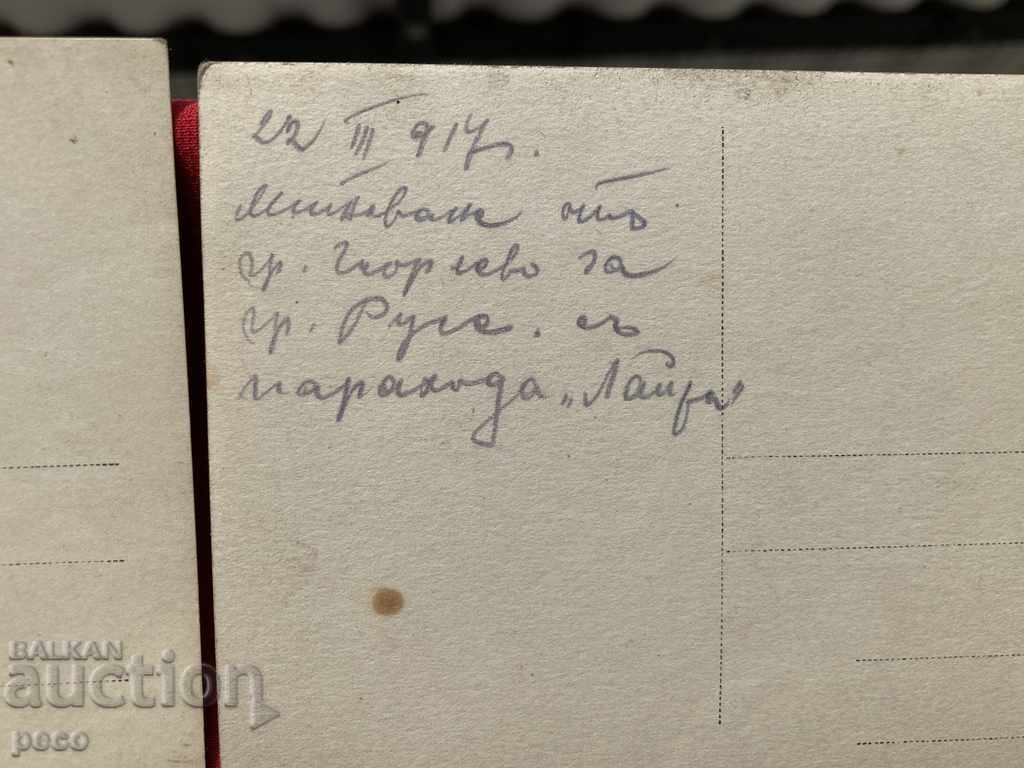 22 III 917 г.
Минаване отъ
гр. Гюргево за
гр. Русе. съ
парахода „
BALKAN
auction
peco